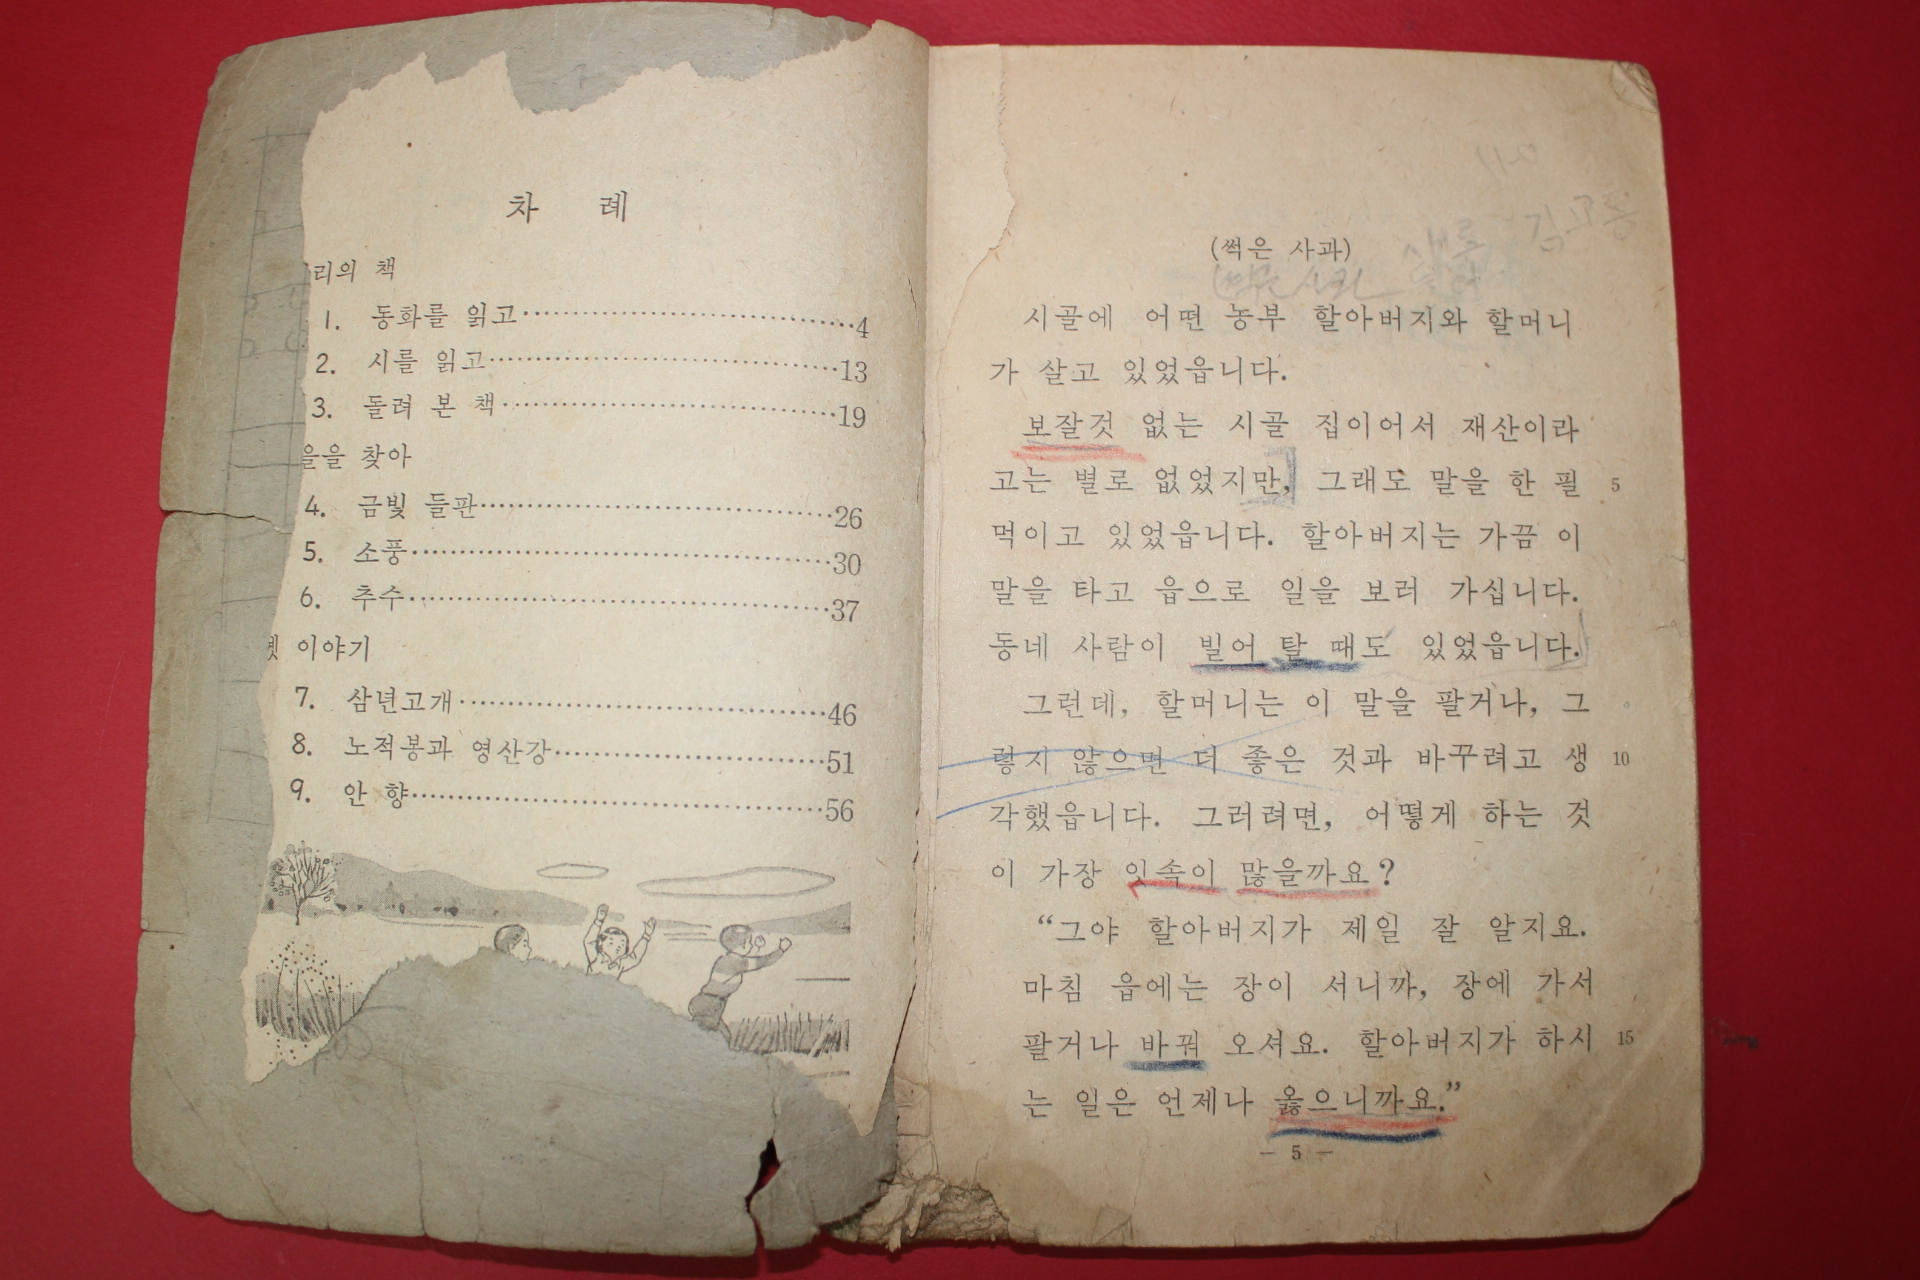 차 례
리의 책
1. 동화를 읽고 4
2. 시를 읽고 13
3. 돌려 본 책 19
을을 찾아
4. 금빛 들판 26
5. 소풍 30
6. 추수 37
이야기
7. 삼년고개 46
8. 노적봉과 영산강 51
9. 안 향 56
(썩은 사과)
시골에 어떤 농부 할아버지와 할머니
가 살고 있었읍니다.
보잘것 없는 시골 집이어서 재산이라
고는 별로 없었지만, 그래도 말을 한 필 5
먹이고 있었읍니다. 할아버지는 가끔 이
말을 타고 읍으로 일을 보러 가십니다.
동네 사람이 빌어 탈 때도 있었읍니다.
그런데, 할머니는 이 말을 팔거나, 그
렇지 않으면 더 좋은 것과 바꾸려고 생 10
각했읍니다. 그러려면, 어떻게 하는 것
이 가장 잇속이 많을까요?
“그야 할아버지가 제일 잘 알지요.
마침 읍에는 장이 서니까, 장에 가서
팔거나 바꿔 오셔요. 할아버지가 하시 15
는 일은 언제나 옳으니까요.”
— 5 —